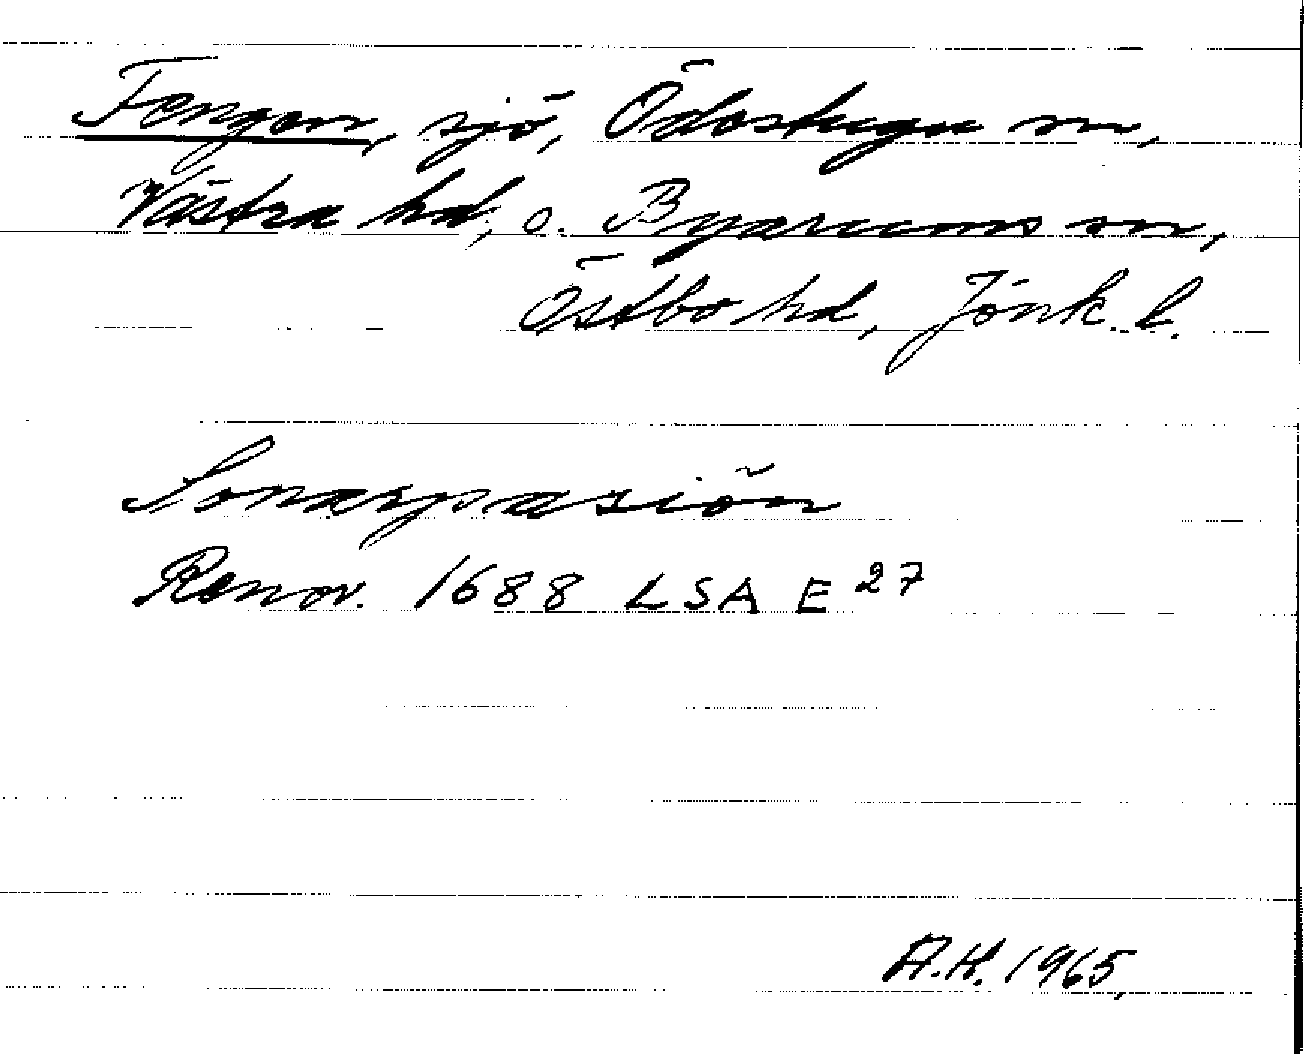 Fengen, sjö, Ödestugu sn,
Västra hd, o. Byarums sn,
Östbo hd, Jönk. l.
Sonarpasiön
Renov. 1688 LSA E 27
A.H. 1965,